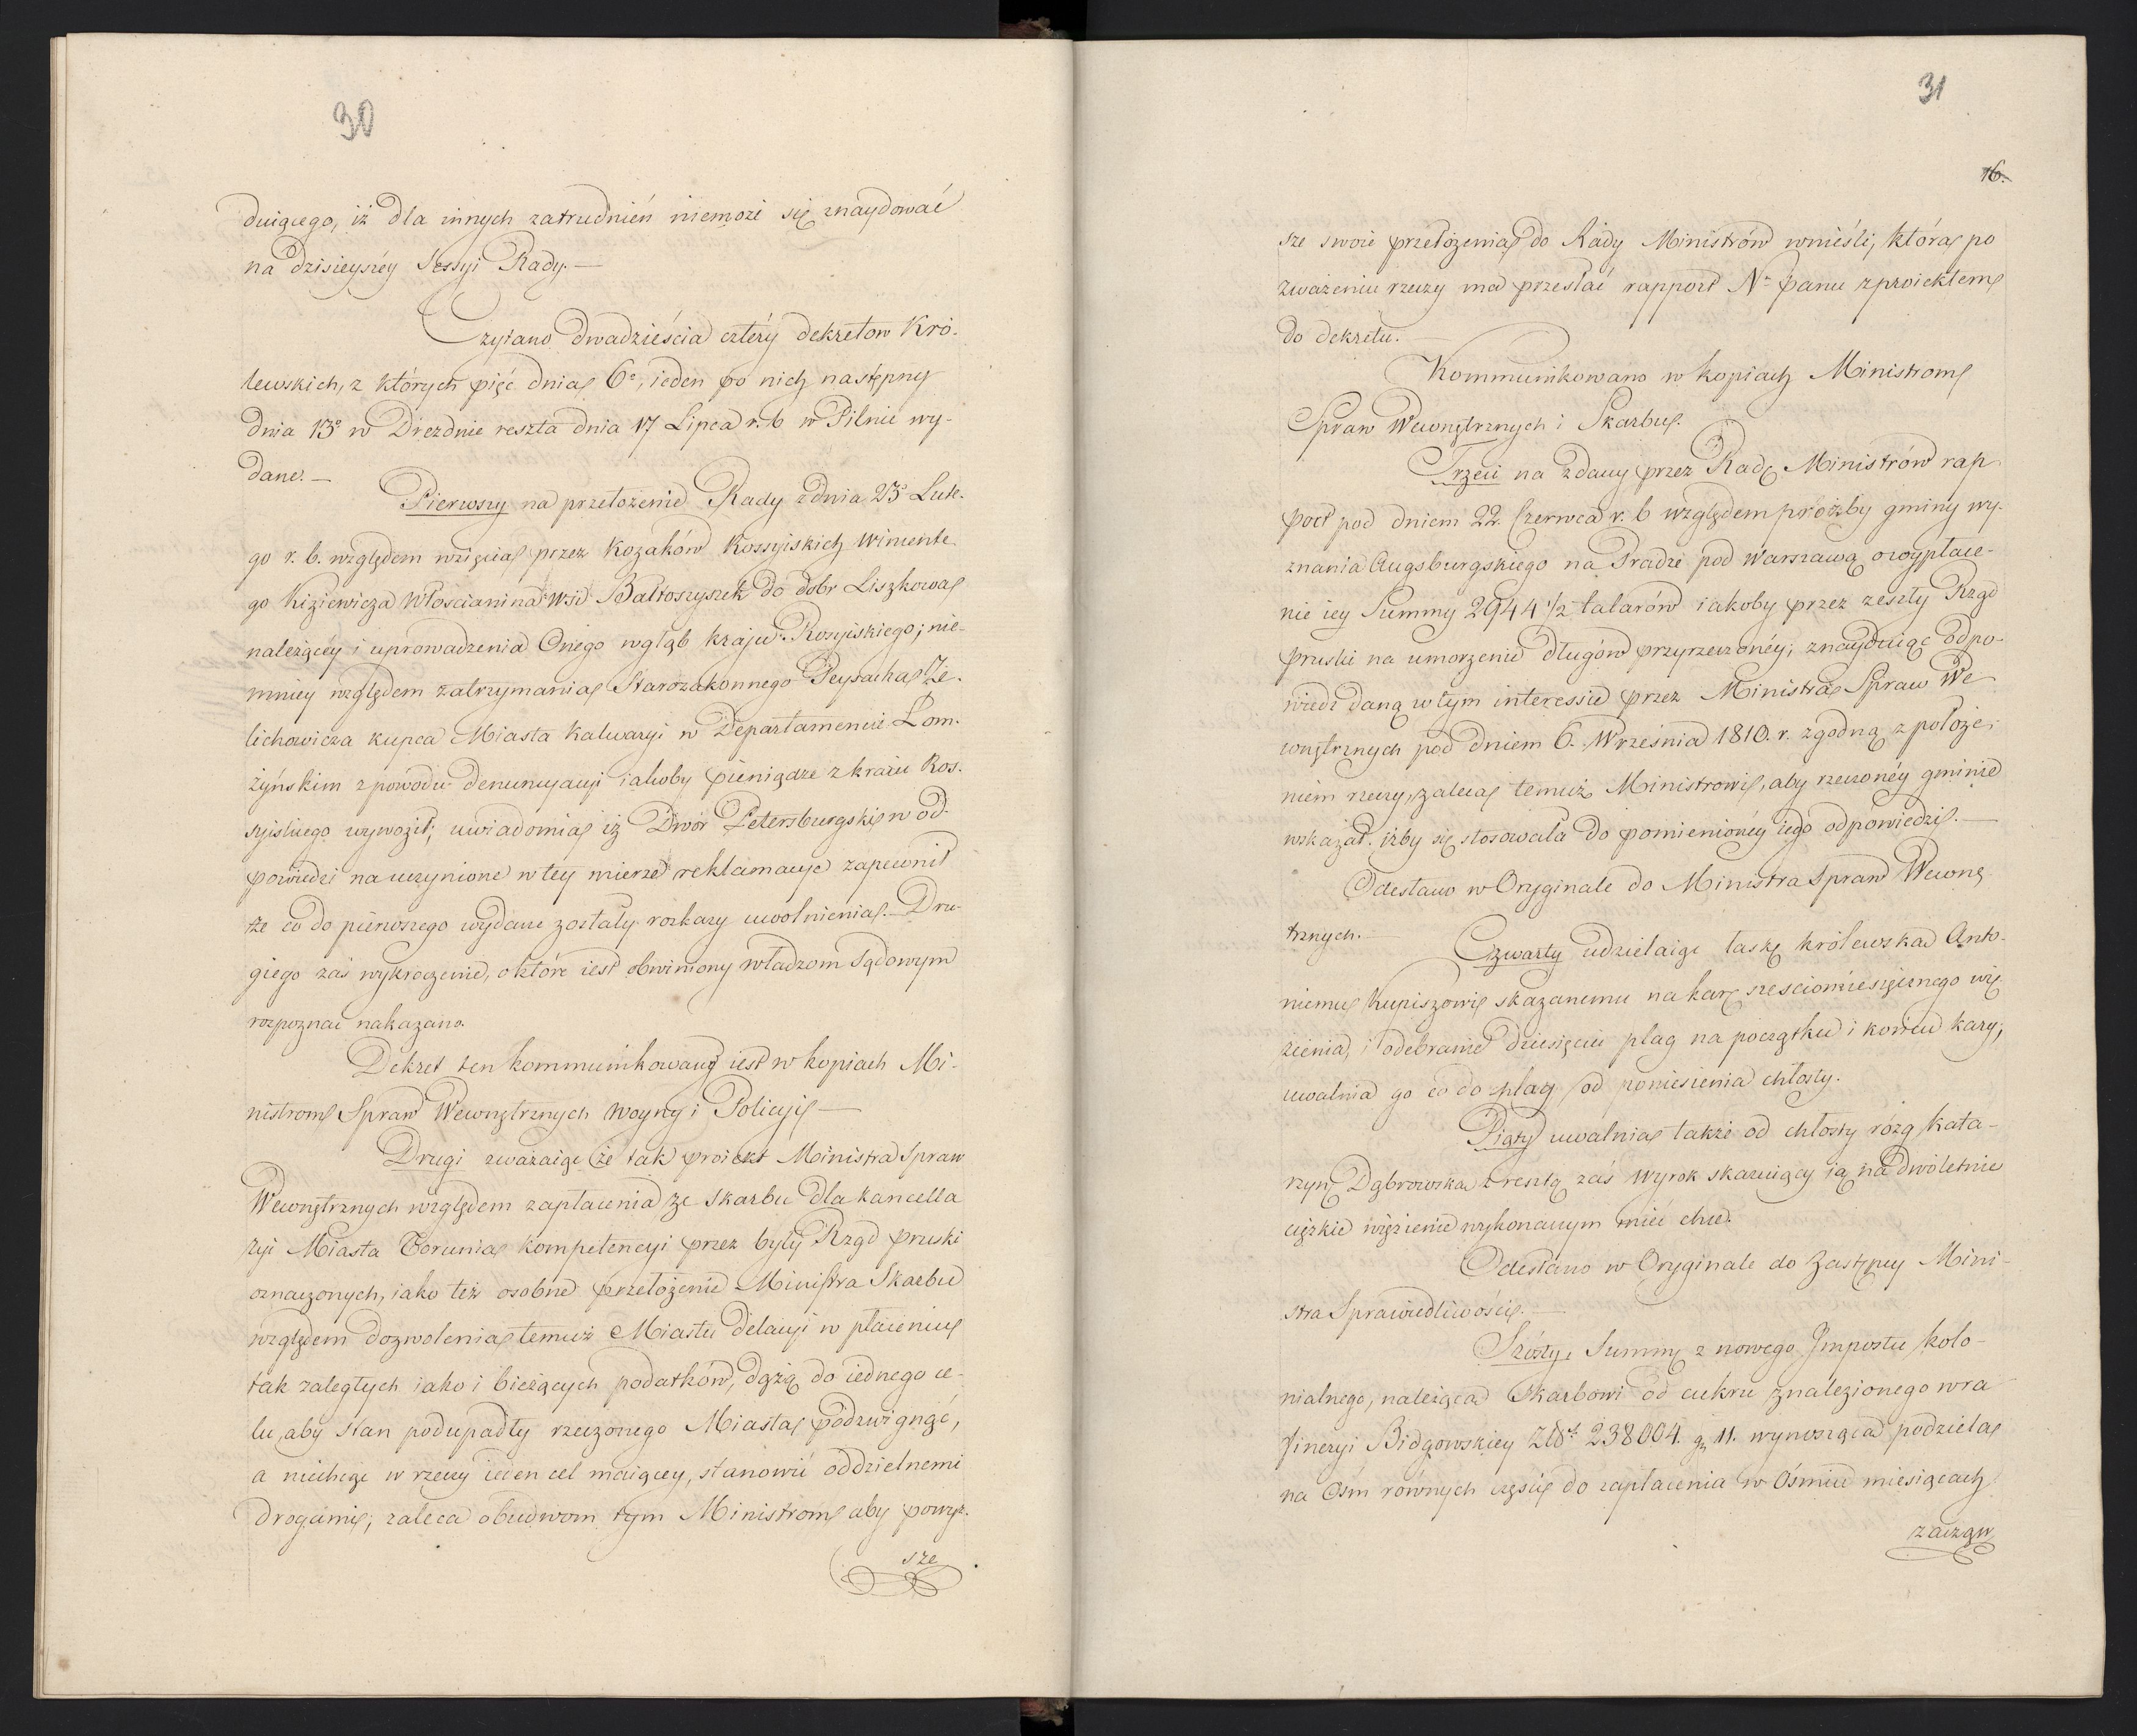 30
duiącego, iż dla innych zatrudnień niemoże się znaydować
na dzisieyszéy Sessyi Rady. —
Czytano dwadzieścia cztéry dekretow Kró-
lewskich, z których pięć dnia 6º, ieden po nich następny
dnia 13º w Dreznie reszta dnia 17 Lipca r. b w Pilnie wy-
dane. —
Pierwszy na przełożenie Rady z dnia 23º Lute-
go r. b. względem wzięcia przez Kozaków Rossyiskich Wincente
go Kiziewicza Włościanina wsi Bałtoszyszek do dobr Liszkowa
należącéy i uprowadzenia Onego wgłąb kraju Rosyiskiego; nie-
mniey względem zatrzymania Starozakonnego Peysacha Ze-
lichowicza kupca Miasta Kalwaryi w Departamencie Łom-
żyńskim z powodu denuncyacyi iakoby pieniądze z kraiu Ros-
syiskiego wywoził; uwiadomia iż Dwór Petersburgski w od-
powiedzi na uczynione w tey mierze reklamacye zapewnił
że co do piérwszego wydane zostały rozkazy uwolnienia. — Dru-
giego zaś wykroczenie, o które iest obwiniony władzom Sądowym
rozpoznać nakazano.
Dekret ten kommunikowany iest w kopiach Mi-
nistrom Spraw Wewnętrznych Woyny i Policyi —
Drugi zważaiąc że tak proiekt Ministra Spraw
Wewnętrznych względem zapłacenia ze Skarbu dla kancella
ryi Miasta Torunia kompetencyi przez były Rząd pruski
oznaczonych, iako też osobne przełożenie Ministra Skarbu
względem dozwolenia temuż Miastu delacyi w płaceniu
tak zaległych iako i bieżących podatków, dążą do iednego ce-
lu, aby stan podupadły rzeczonego Miasta podzwignąć,
a niechcąc w rzeczy ieden cel maiącey, stanowić oddzielnemi
drogami; zaleca obudwom tym Ministrom aby powyż-
sze
31
16.
sze swoie przełożenia do Rady Ministrów wnieśli, która po
zważeniu rzeczy ma przesłać rapport N. panu z proiektem
do dekretu. —
Kommunikowano w kopiach Ministrom
Spraw Wewnętrznych i Skarbu.
Trzeci na zdany przez Radę Ministrów rap
port pod dniem 22. Czerwca r. b względem prożby gminy wy-
znania Augsburgskiego na Pradze pod Warszawą o wypłace-
nie iey Summy 2944 1/2 talarów iakoby przez zeszły Rząd
pruski na umorzenie długów przyrzeczonéy; znayduiąc odpo-
wiedź daną w tym interessie przez Ministra Spraw We
wnętrznych pod dniem 6. Września 1810. r. zgodną z położe-
niem rzeczy, zaleca temuż Ministrowi, aby rzeczonéy gminie
wskazał iżby się stosowała do pomienionéy iego odpowiedzi. —
Odesłano w Oryginale do Ministra Spraw Wewnę
trznych. —
Czwarty udzielaiąc łaskę królewska Anto-
niemu Kupiszowi skazanemu na karę sześciomiesięcznego wię
zienia, i odebranie dziesięciu plag na początku i końcu kary,
uwalnia go co do plag od poniesienia chłosty.
Piąty uwalnia także od chłosty rózg Kata-
rzynę Dąbrowska z resztą zaś Wyrok skazuiący ią na dwóletnie
ciężkie więzienie wykonanym mieć chce.
Odesłano w Oryginale do Zastępcy Mini-
stra Sprawiedliwości. —
Szósty Summę z nowego Impostu kolo-
nialnego, należąca Skarbowi od cukru znalezionego w ra
fineryi Bidgowskiey Złot. 238004. g. 11. wynosząca podziela
na Ośm równych części do zapłacenia w Ośmiu miesiącach
zacząw